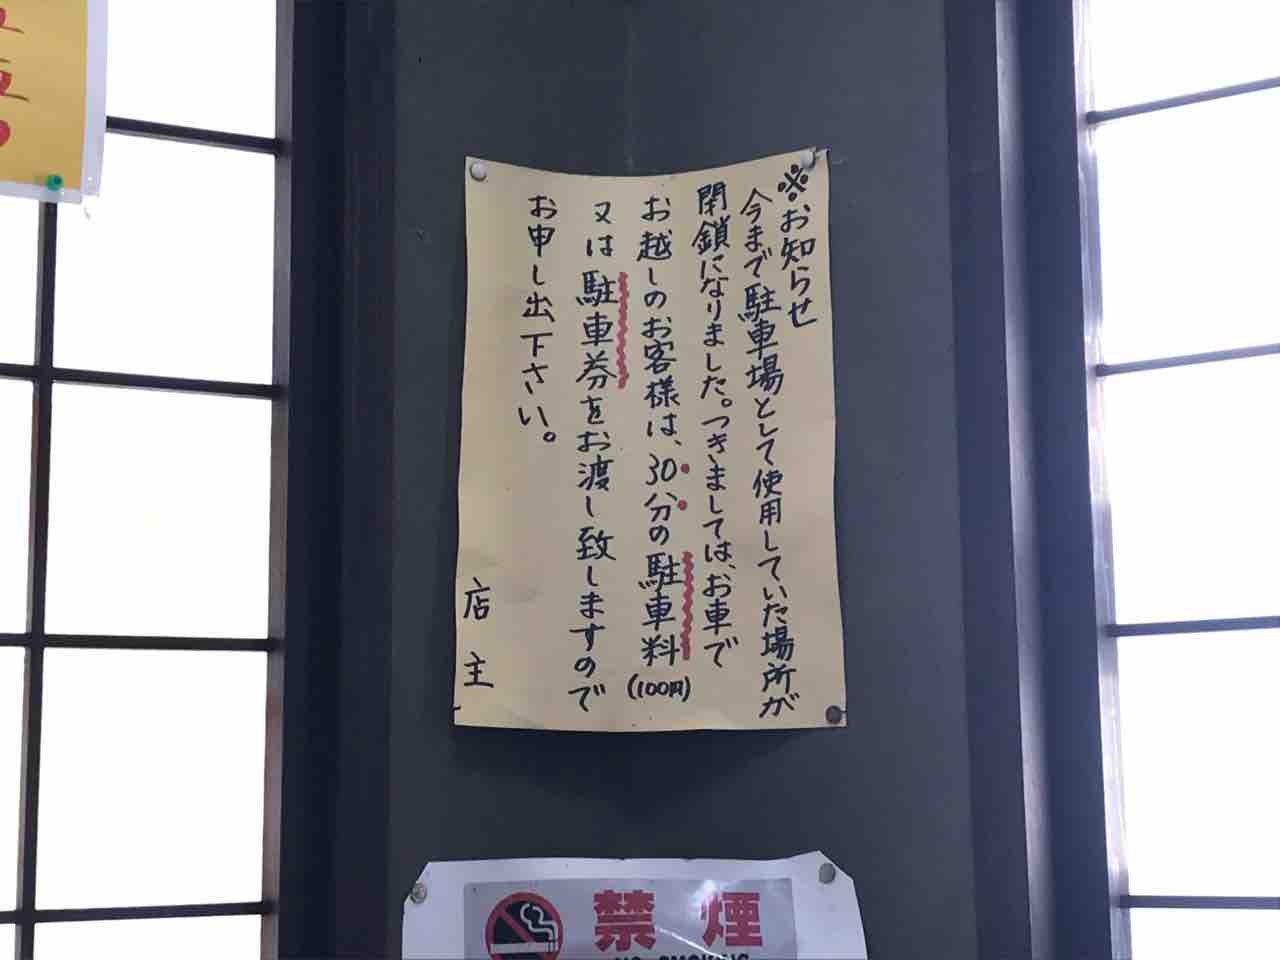 ※お知らせ
今まで駐車場として使用していた場所が
閉鎖になりました。つきましては、お車で
お越しのお客様は、30分の駐車料(100円)
又は駐車券をお渡し致しますので
お申し出下さい。
店主
禁煙
NO SMOKING